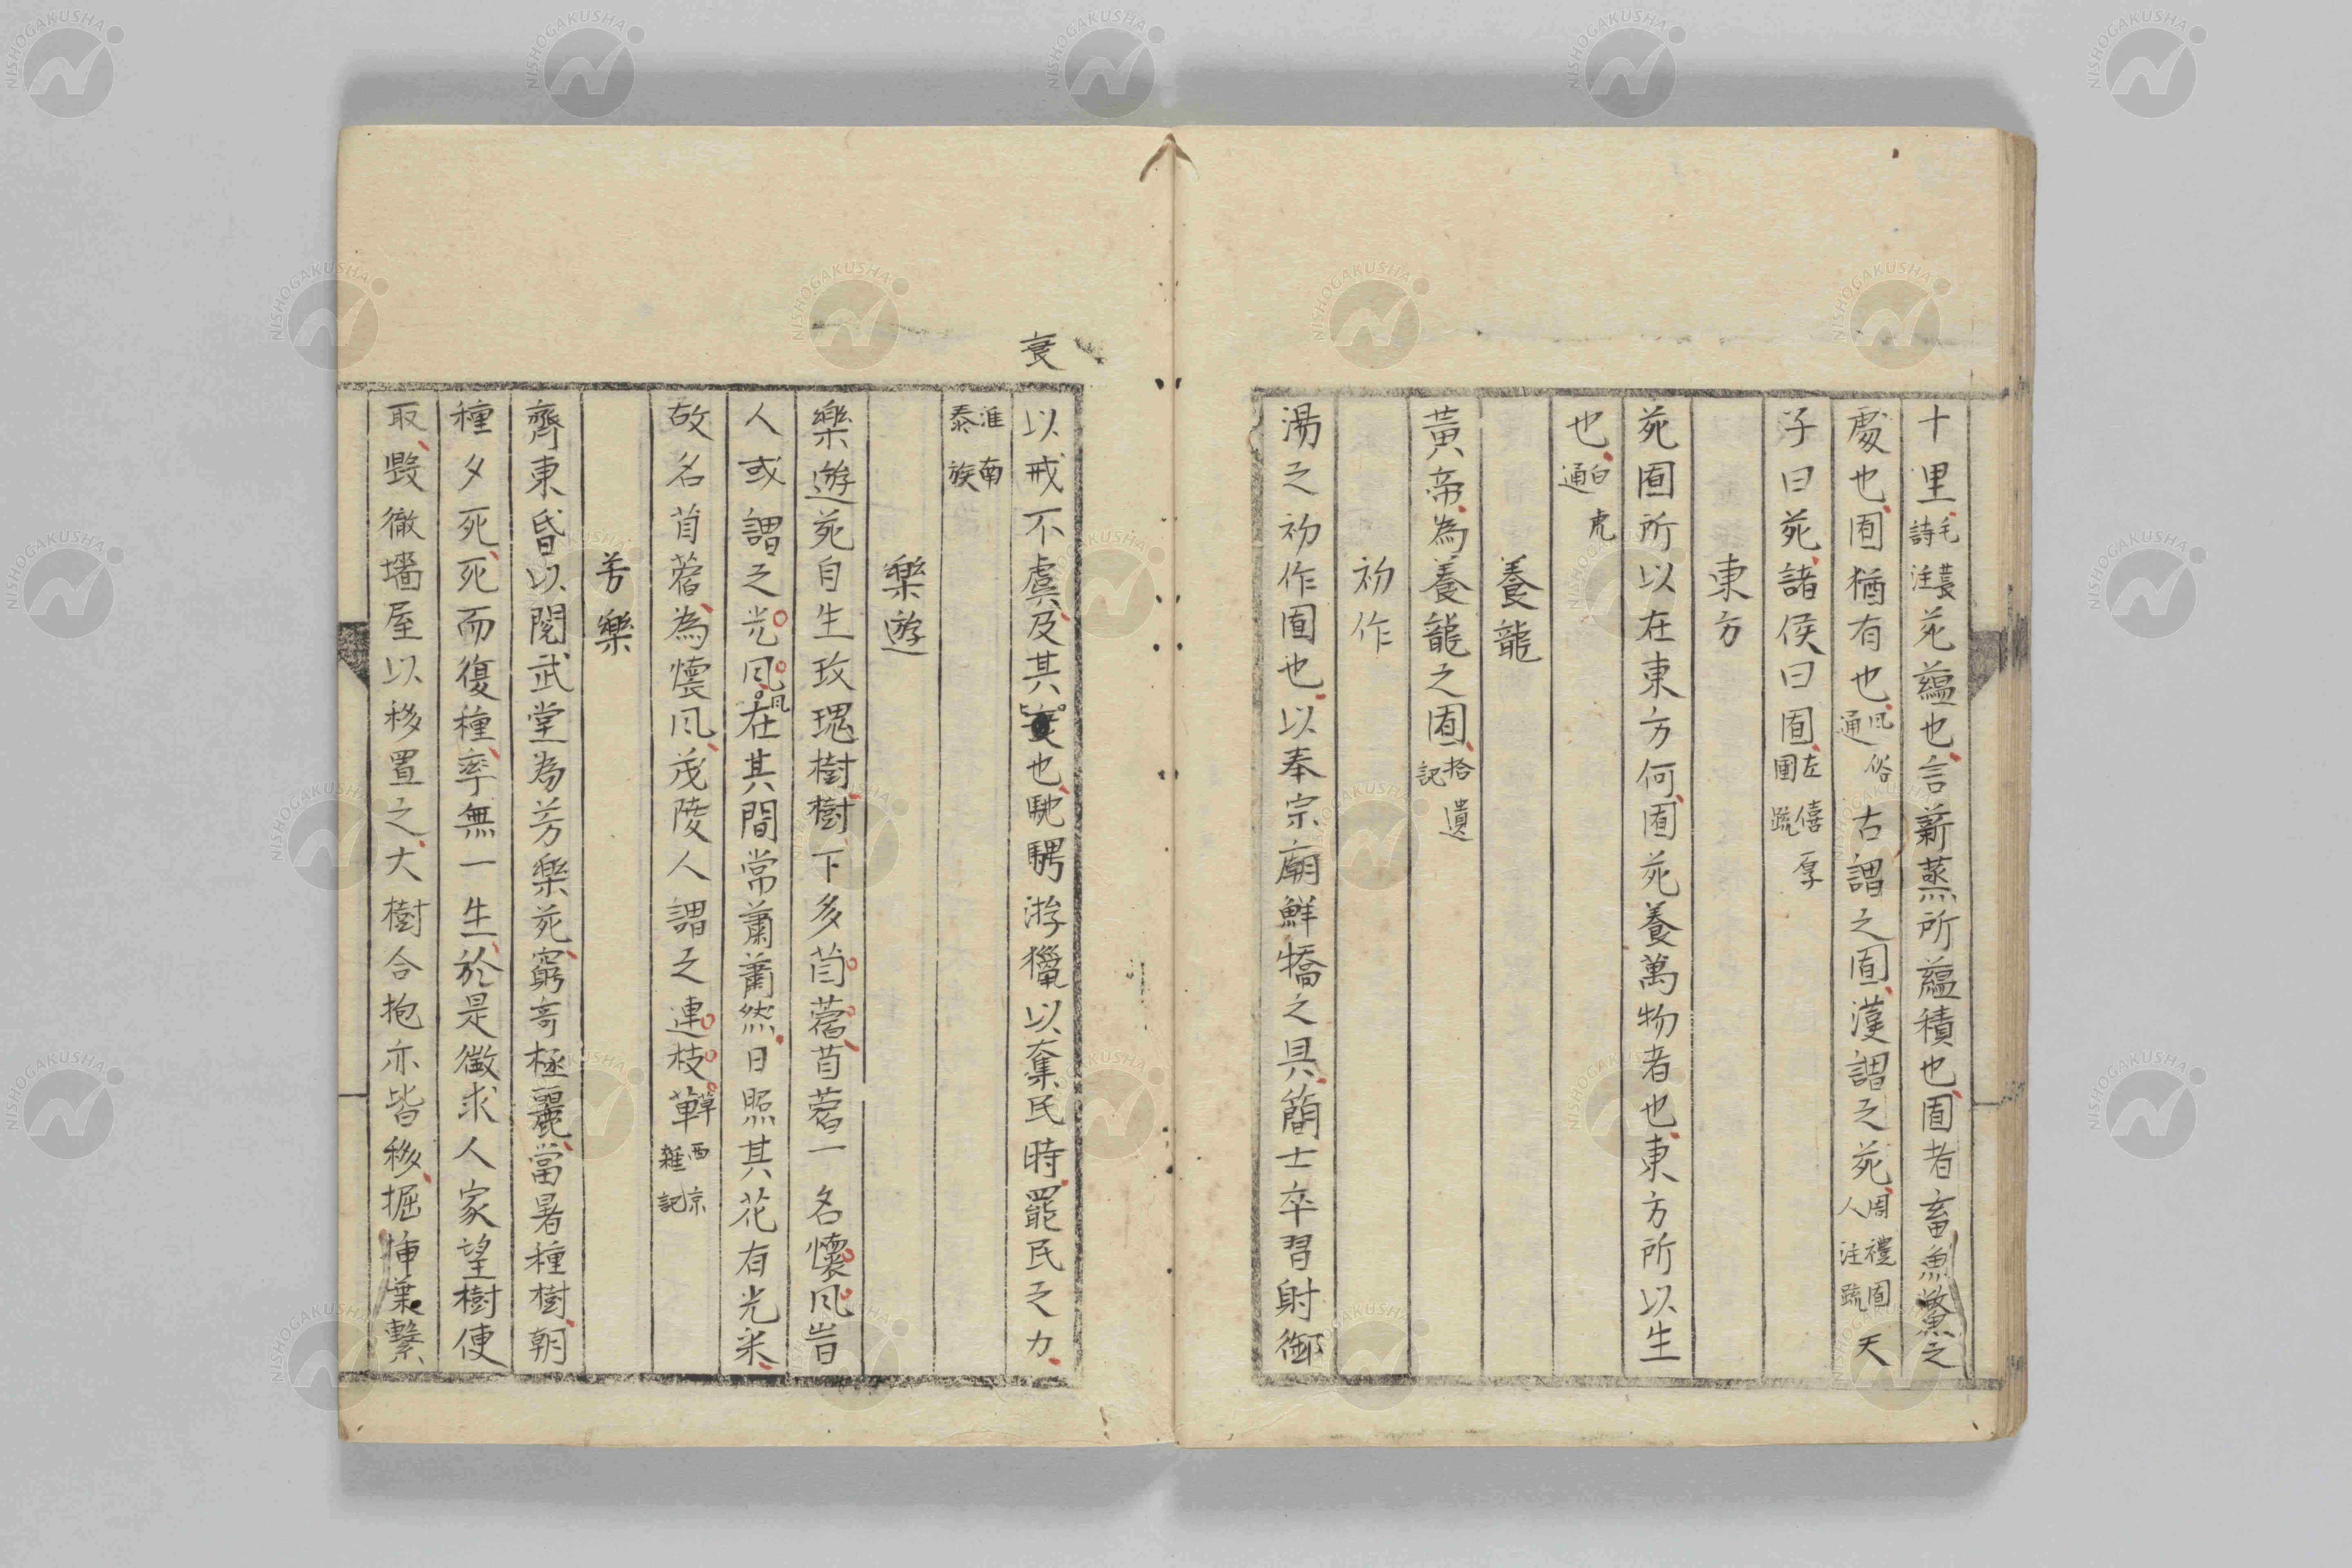 十里毛萇詩注苑蘊也言薪蒸所蘊積也囿者畜魚鱉之
處也囿猶有也風俗通古謂之囿漢謂之苑周禮囿人注疏天
子曰苑諸侯曰囿左僖圉疏
東方
苑囿所以在東方何囿苑養萬物者也東方所以生
也白虎通
養龍
黃帝為養龍之囿拾遺記
初作
湯之初作囿也以奉宗廟鮮犞之具簡士卒習射御
衰
以戒不虞及其衰也馳騁游獵以奪民時罷民之力
淮南泰族
樂遊
樂遊苑自生玫瑰樹樹下多苜蓿苜蓿一名懷風旹
人或謂之光風風在其間常蕭蕭然日照其花有光采
故名苜蓿為懷風茂陵人謂之連枝草西京雜記
芳樂
齊東昏以閱武堂為芳樂苑窮奇極麗當暑種樹朝
種夕死死而復種率無一生於是徵求人家望樹便
取毀徹墻屋以移置之大樹合抱亦皆移掘插葉繫
NISHOGAKUSHA